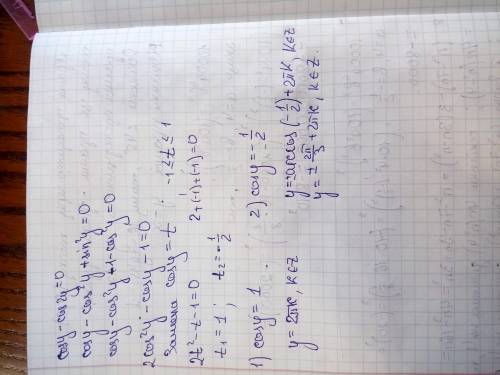 cosy - cos2y = 0
cosy - cos²y + sin²y = 0
cosy - cos²y + 1 - cos²y = 0
2cos²y - cosy - 1 = 0
Замена cosy = t ; -1 ≤ t ≤ 1
2t² - t - 1 = 0 2 + (-1) + (-1) = 0
t₁ = 1 ; t₂ = -1/2
1) cosy = 1 2) cosy = -1/2
y = 2πk, k∈Z y = ±arccos(-1/2) + 2πk, k∈Z
y = ± 2π/3 + 2πk, k∈Z.